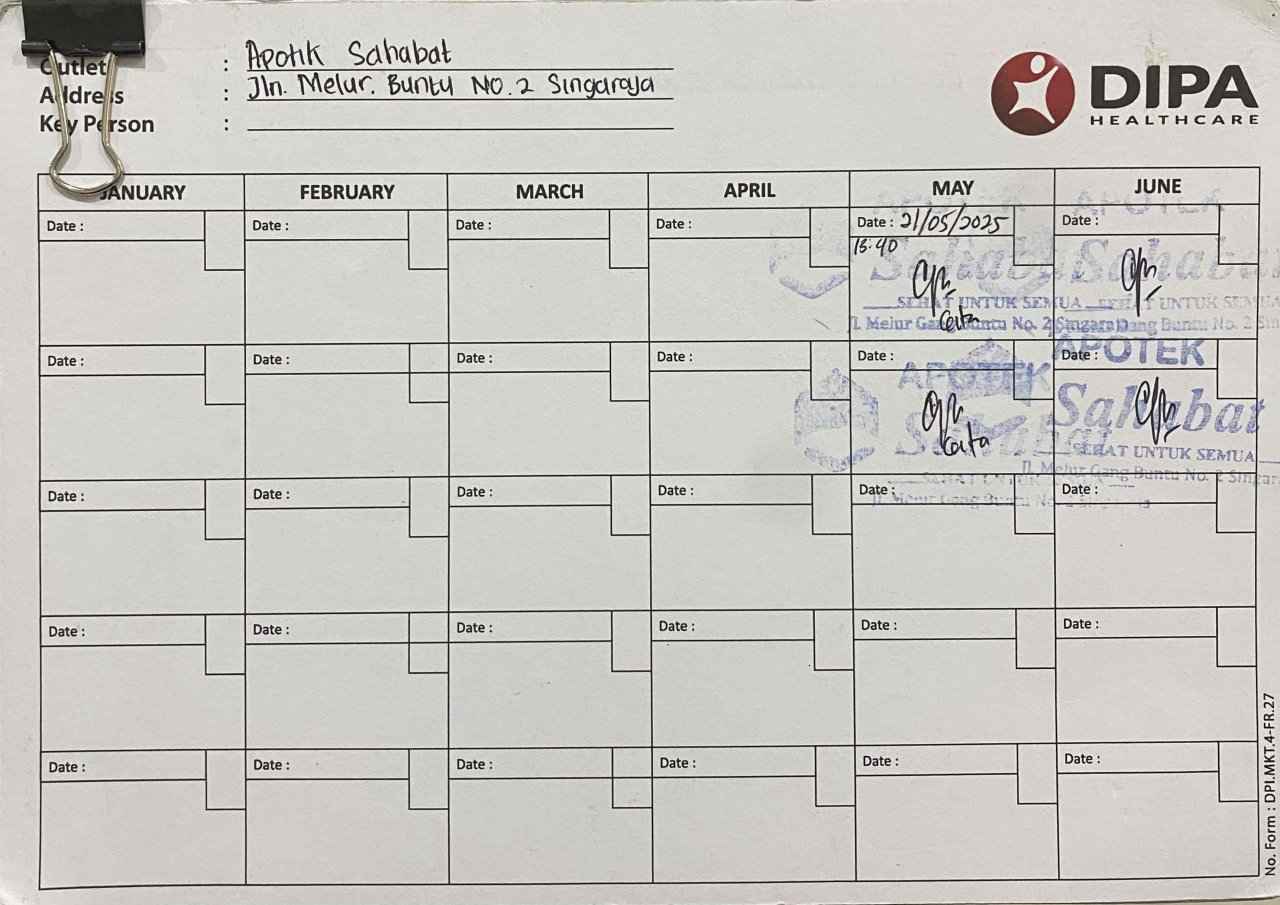 Outlet : Apotik Sahabat
Address : Jln. Melur. Buntu NO. 2 Singaraja
Key Person :
DIPA
HEALTHCARE
JANUARY FEBRUARY MARCH APRIL MAY JUNE
Date : Date : Date : Date : Date : 21/05/2025 Date :
APOTEK APOTEK
Sahabat Sahabat
SEHAT UNTUK SEMUA SEHAT UNTUK SEMUA
Jl. Melur Gang Buntu No. 2 Singara Gang Buntu No. 2
Date : Date : Date : Date : Date : Date :
APOTEK APOTEK
Sahabat Sahabat
SEHAT UNTUK SEMUA
Jl. Melur Gang Buntu No. 2 Singar
SEHAT UNTUK
Jl. Melur Gang Buntu No. 2
Date : Date : Date : Date : Date : Date :
Date : Date : Date : Date : Date : Date :
Date : Date : Date : Date : Date : Date :
No. Form : DPI.MKT.4-FR.27